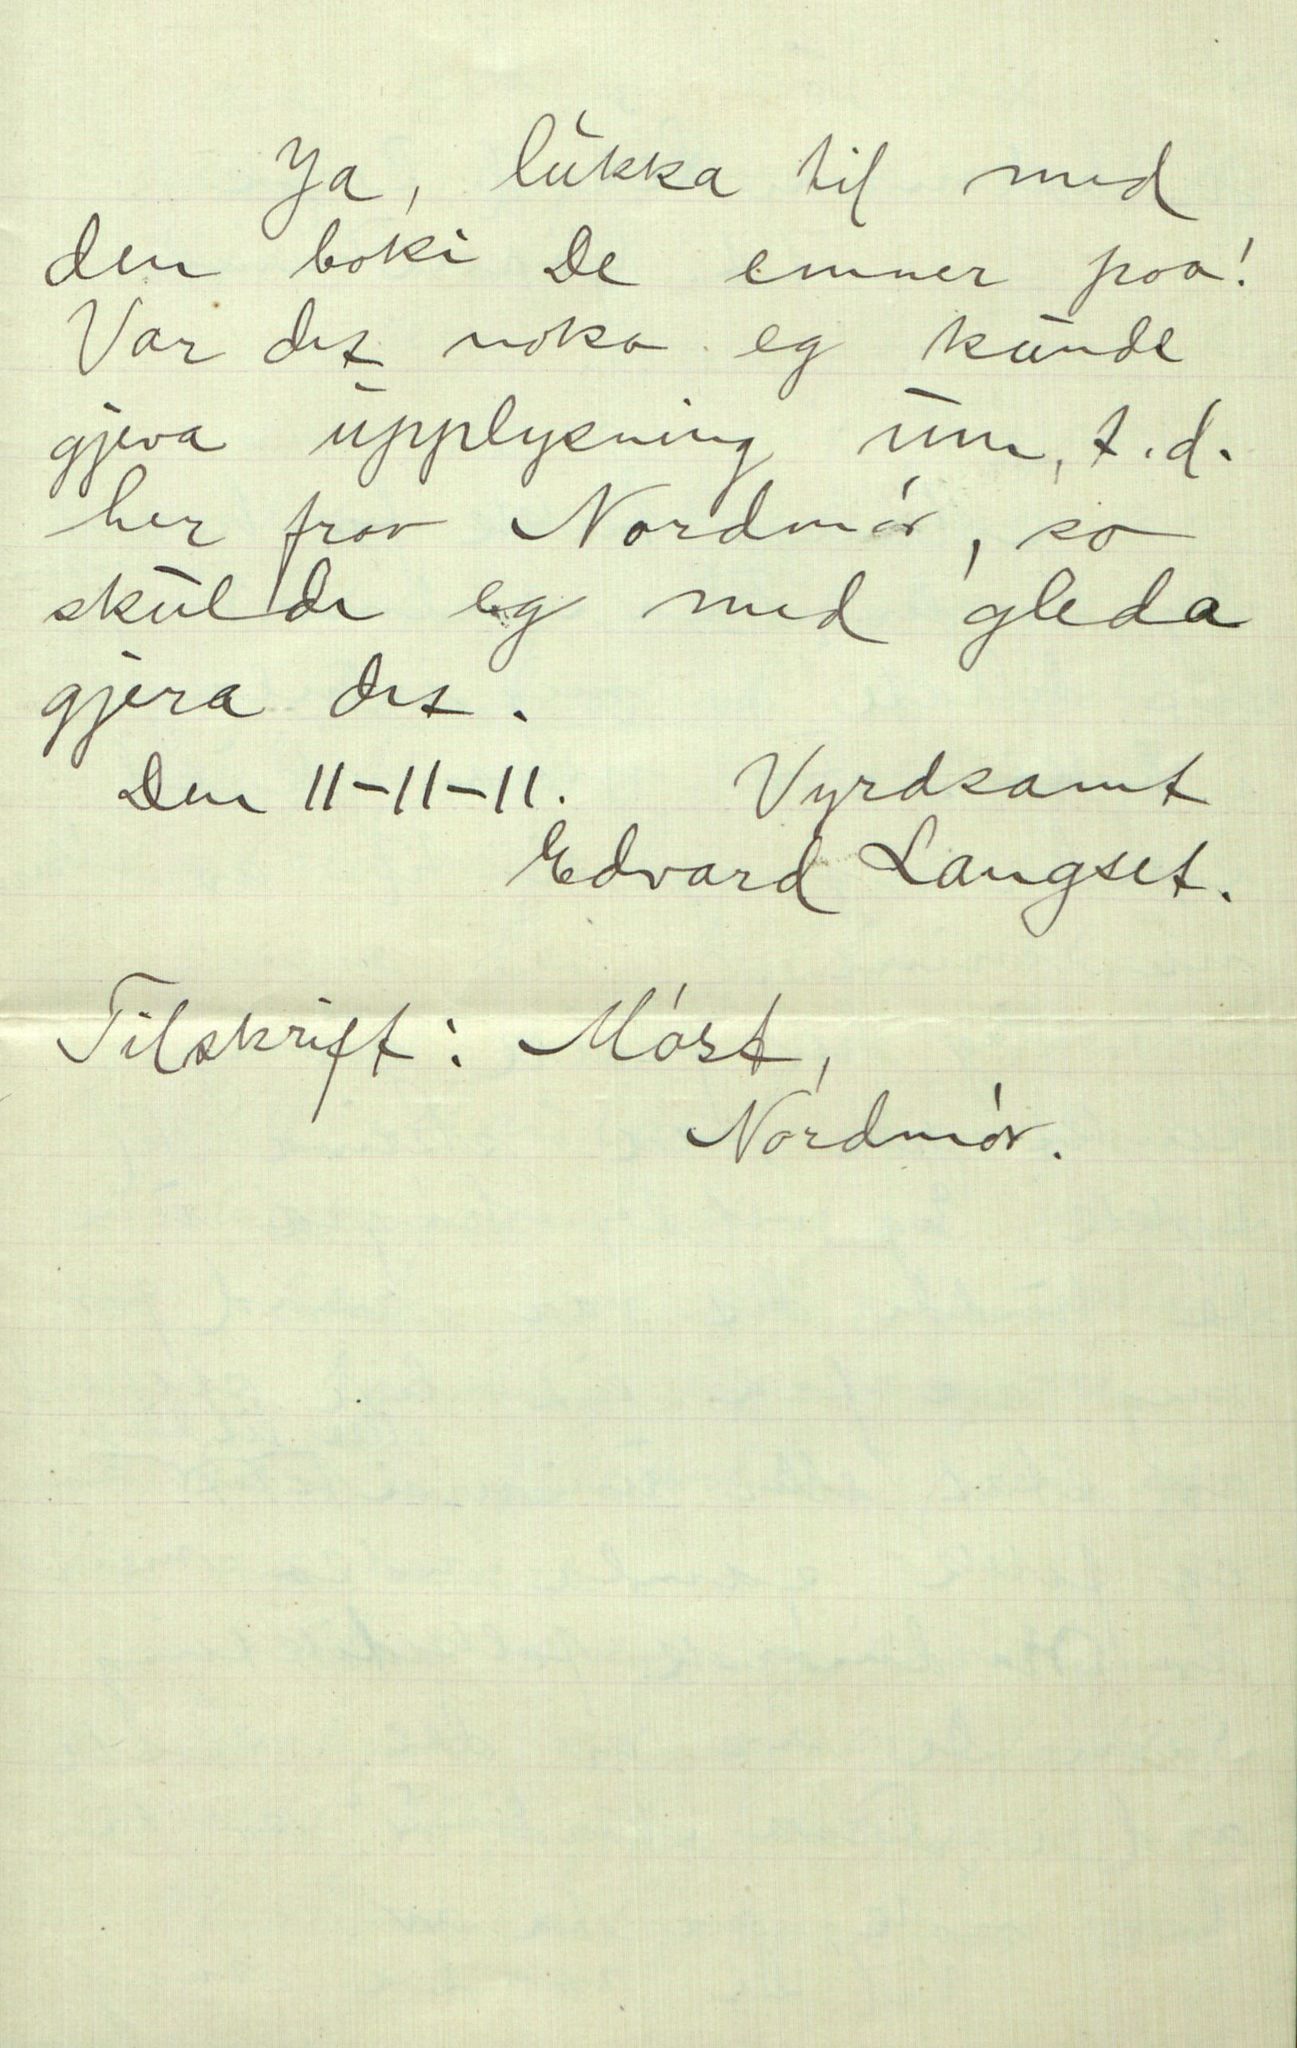 Ja, lukka til med
den boki De emner paa!
Var det noko eg kunde
gjeva upplysning um, t.d.
her fraa Nordmør, so
skulde eg med gleda
gjera det.
Den 11-11-11. Vyrdsamt
Edvard Langset.
Tilskrift: Mørst,
Nordmør.